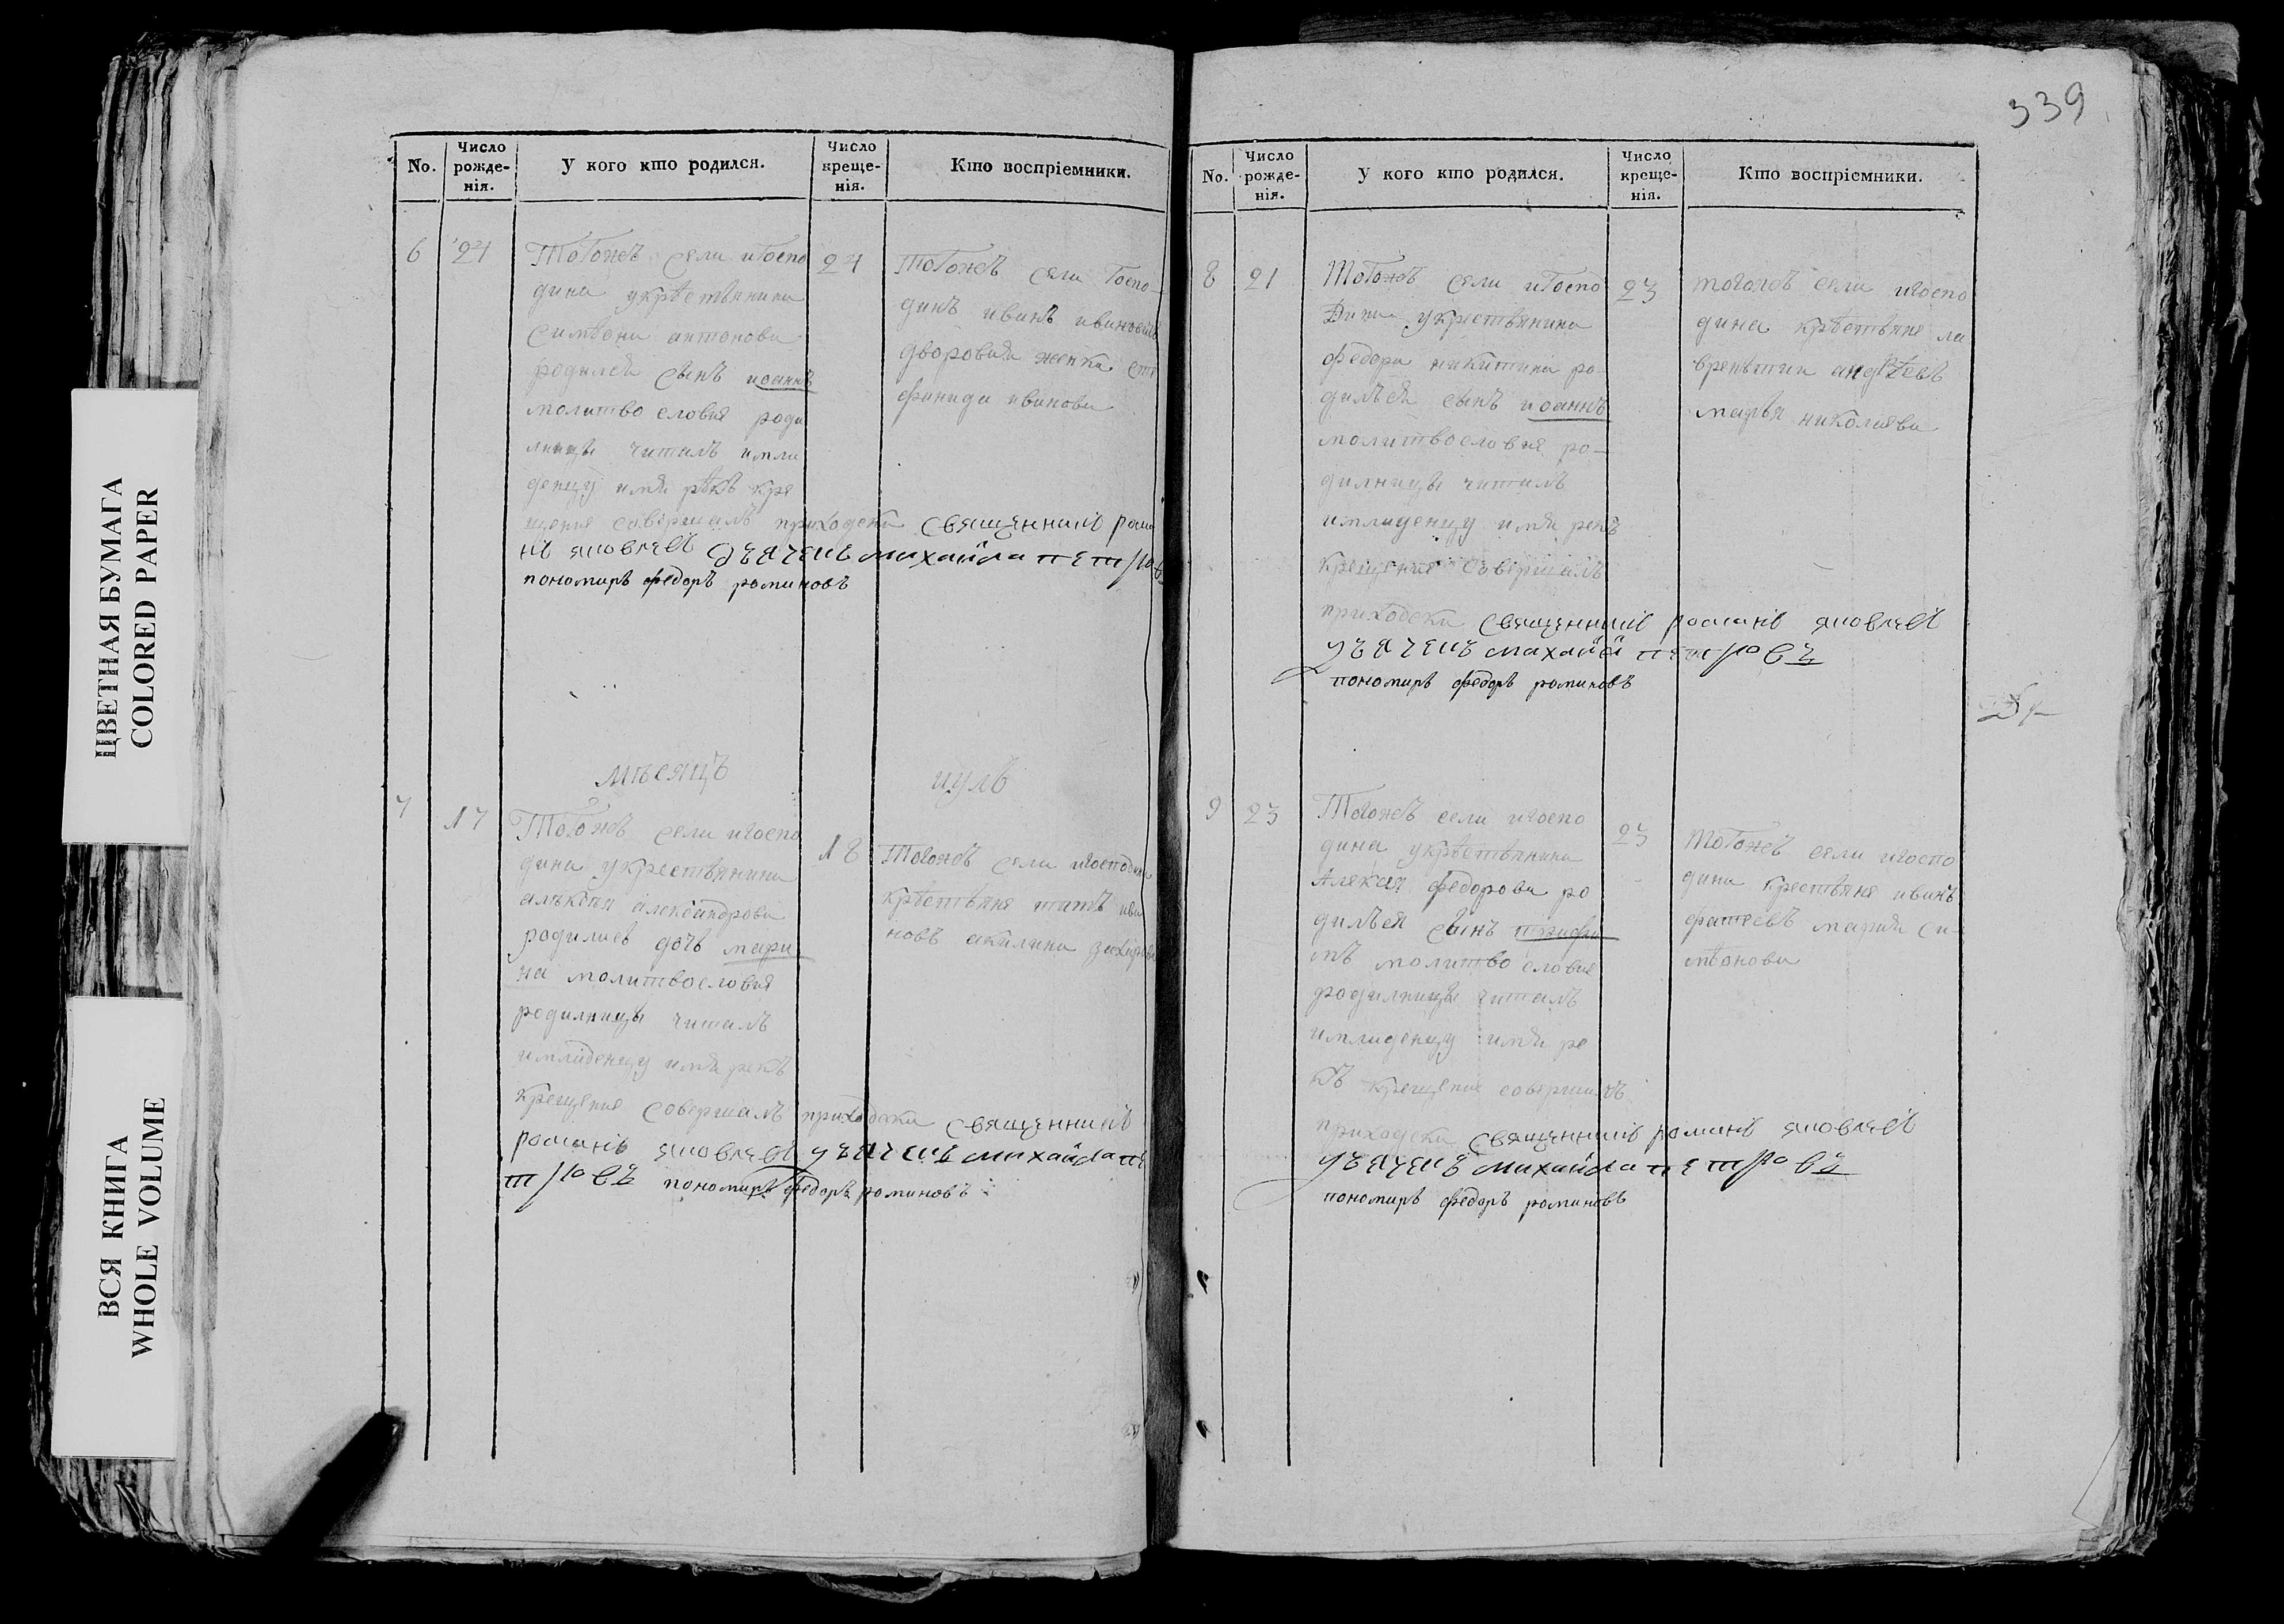 339
No.
Число рожде-нія.
У кого кто родился.
Число креще-нія.
Кто воспріемники.
6 21
Тогожъ сели игоспо
дина укрѣстьянина
симѣона антонова
родился сынъ иоаннъ
молитво словия роди
лницы читалъ имла
денцу имя рѣкъ кре
щения совѣршалъ приходски священникъ рома
нъ яковлевъ дьячекъ михайла петровъ
пономаръ федоръ романовъ
24
тогожъ сели Госпо-
динъ иванъ ивановичъ
дворовая женка сте
фанида иванова
мѣсяцъ июль
7 17
Тогожъ сели игоспо
дина укрестьянина
алѣксѣя александрова
родилась дочь мари
на молитвословия
родилницы читалъ
имладенцу имя рекъ
крещения совершалъ приходски священникъ
романъ яковлевъ дьячекъ михайла пе
тровъ пономаръ федоръ романовъ
18
Тогожъ сели игосподина
крѣстьяня
новъ акилина
No.
Число рожде-нія.
У кого кто родился.
Число креще-нія.
Кто воспріемники.
8 21
Тогожъ сели игоспо
дина укрестьянина
федора никитина ро
дился сынъ иоаннъ
молитвословия ро-
дилницы читалъ
имладенцу имя рекъ
крещения совѣршалъ
приходски священникъ романъ яковлевъ
дьячекъ михайла петровъ
пономаръ федоръ романовъ
23
тогожъ сели игоспо
дина крѣстьяне ла
врентий андреевъ
марья николаева
9 23
Тогожъ сели игоспо
дина укрѣстьянина
Алексия федорова ро
дилъся сынъ
молитво словия
родилницы читалъ
имладенцу имя ре
къ крещения совершалъ
приходски священникъ романъ яковлевъ
дьячекъ михайла петровъ
пономаръ федоръ романовъ
23
Тогожъ сели игоспо
дина крестьяня иванъ
фатеевъ мария си-
мѣонова
ЦВЕТНАЯ БУМАГА
COLORED PAPER
ВСЯ КНИГА
WHOLE VOLUME